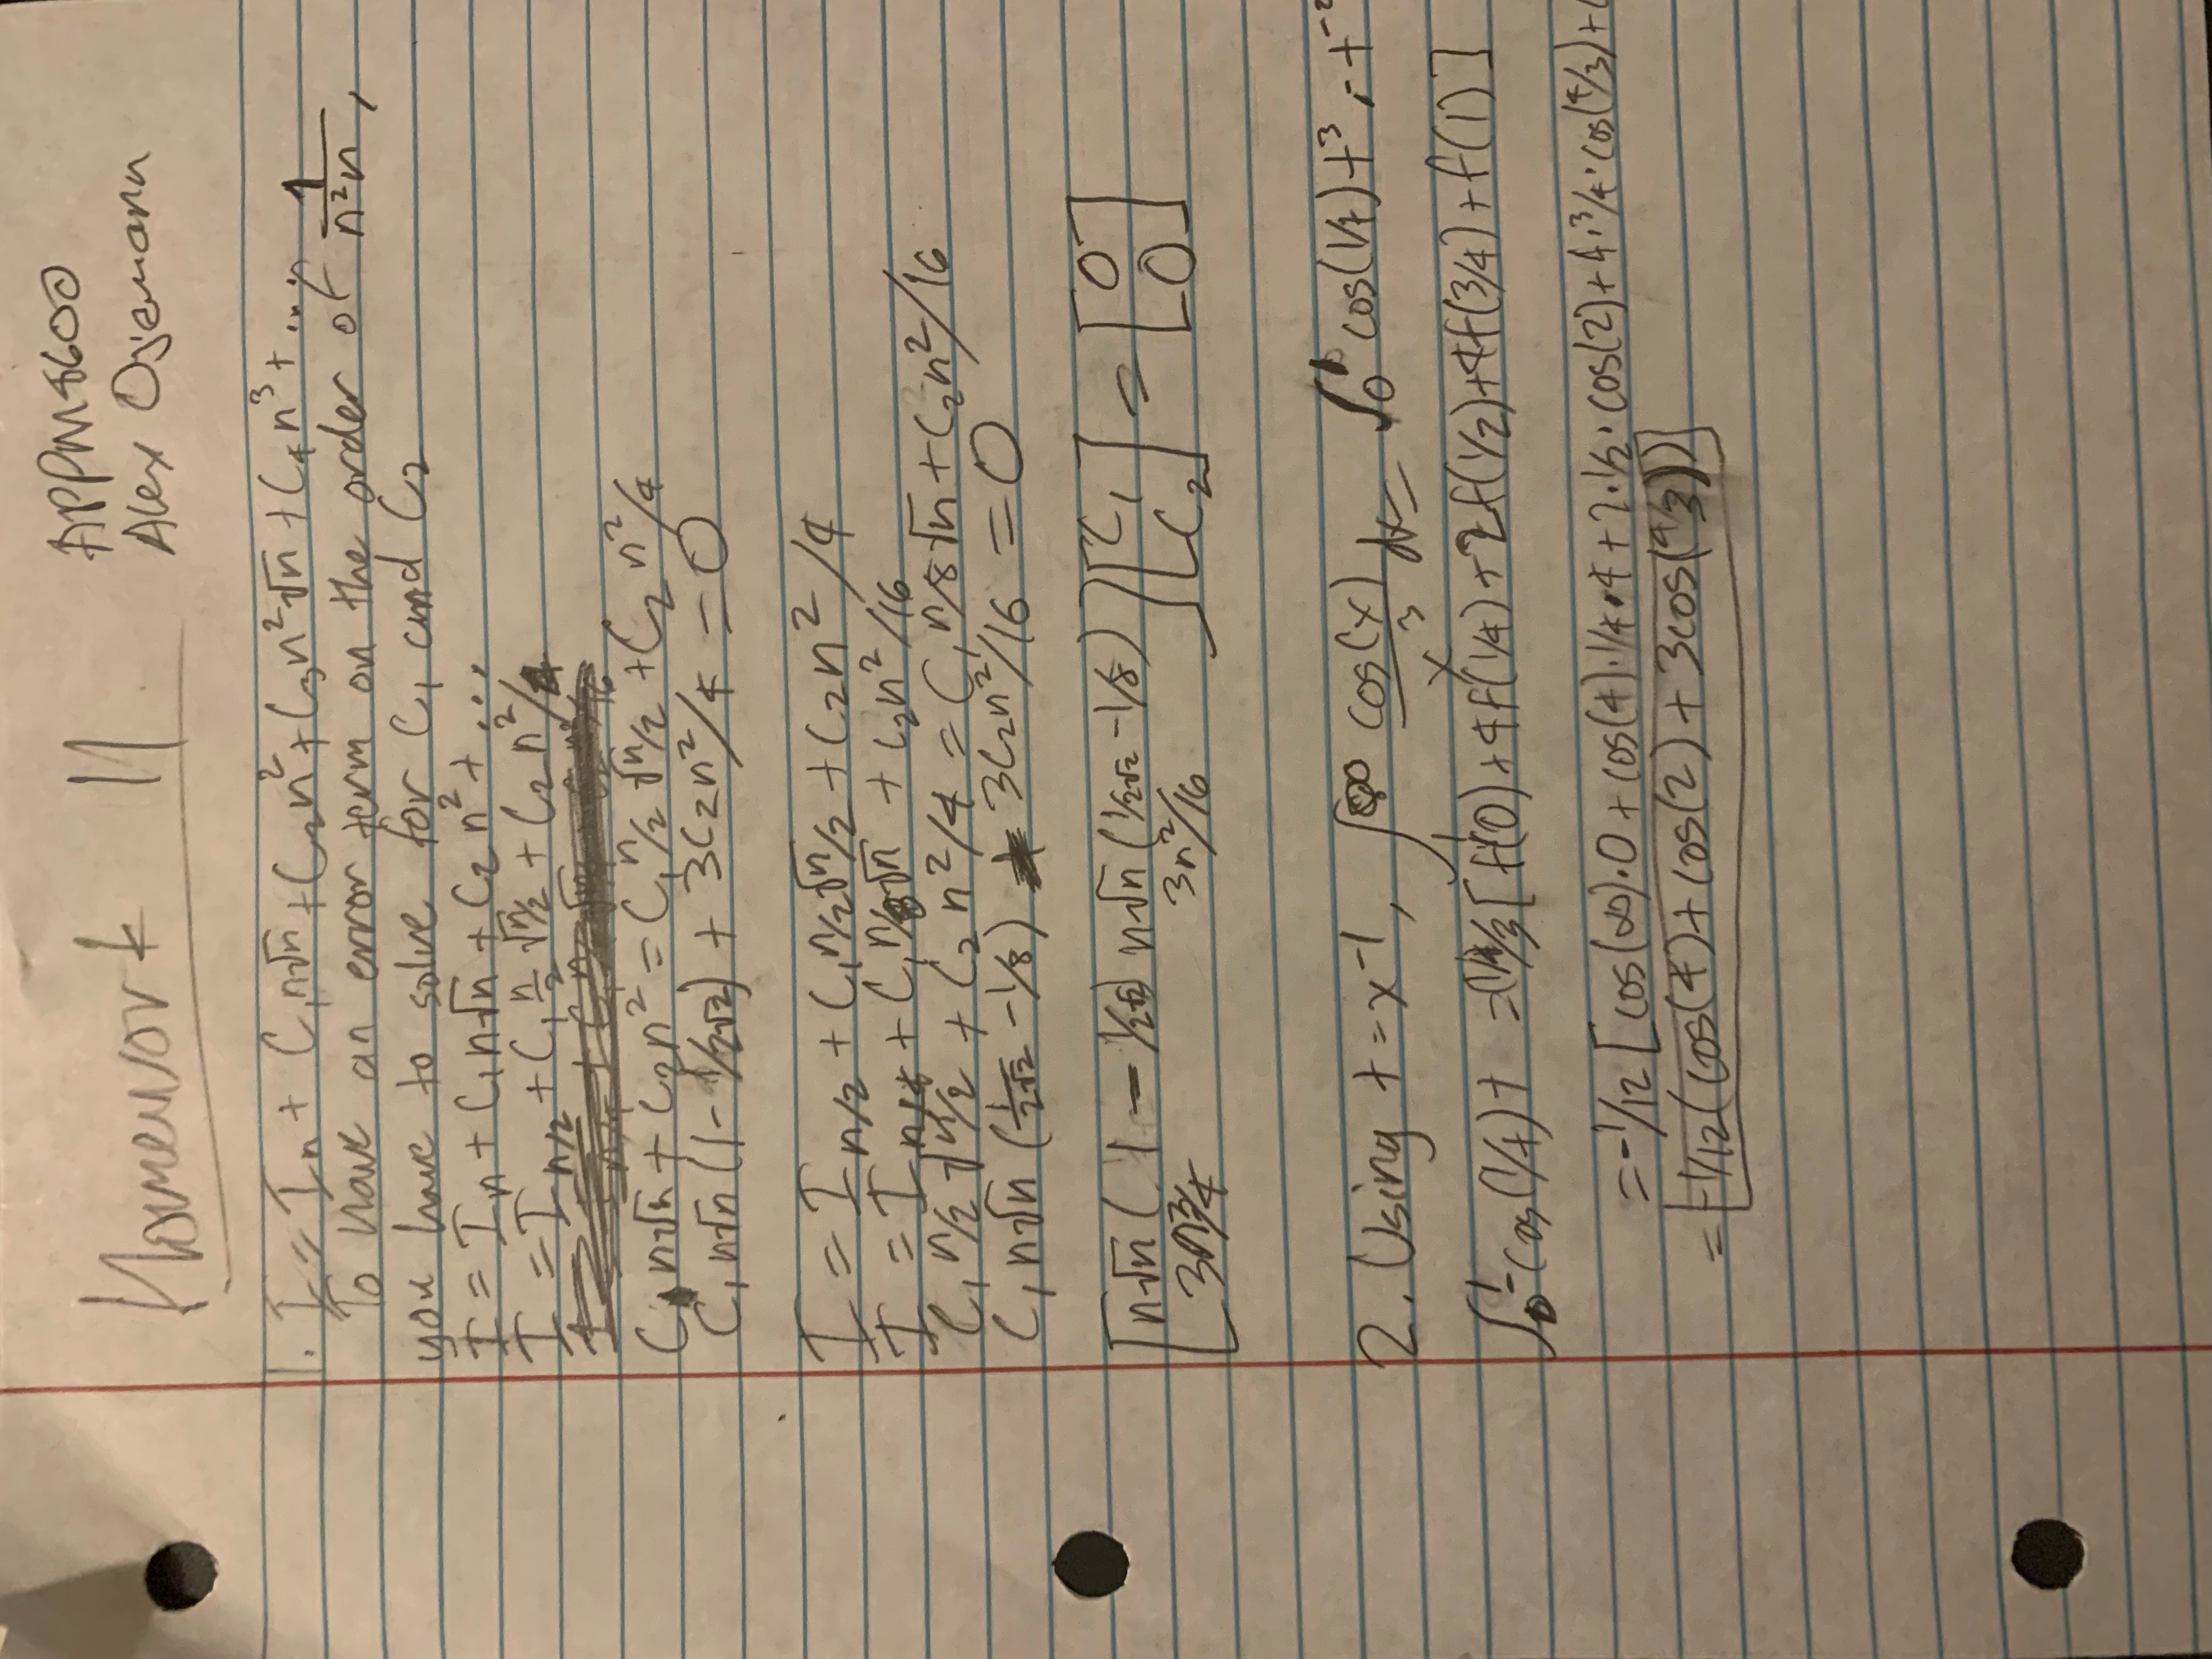 Homework 11
APPM4600
Alex Ojemann
1. I = I_n + C_1 n√n + C_2 n^2 + C_3 n^2 √n + C_4 n^3 + ....
To have an error term on the order of 1/(n^2 n),
you have to solve for C_1 and C_2
I = I_n + C_1 n√n + C_2 n^2 + ...
I = I_{n/2} + C_1 n/2 √n/2 + C_2 n^2/4
C_1 n√n + C_2 n^2 = C_1 n/2 √n/2 + C_2 n^2/4
C_1 n√n (1 - 1/2√2) + 3C_2 n^2/4 = 0
I = I_{n/2} + C_1 n/2 √n/2 + C_2 n^2/4
I = I_{n/4} + C_1 n/8 √n + C_2 n^2/16
C_1 n/2 √n/2 + C_2 n^2/4 = C_1 n/8 √n + C_2 n^2/16
C_1 n√n (1/2√2 - 1/8) + 3C_2 n^2/16 = 0
[n√n (1 - 1/2√2) n√n (1/2√2 - 1/8)] [C_1] = [0]
[3n^2/4 3n^2/16] [C_2] [0]
2. Using t = x^-1, ∫_1^∞ cos(x)/x^3 dx = ∫_0^1 cos(1/t) t^3 · -t^-2
∫_0^1 -cos(1/t) t = (1/4)/3 [f(0) + 4f(1/4) + 2f(1/2) + 4f(3/4) + f(1)]
= -1/12 [cos(∞)·0 + cos(4)·1/4·4 + 2·1/2·cos(2) + 4·3/4·cos(4/3) +
= -1/12 (cos(4) + cos(2) + 3cos(4/3))